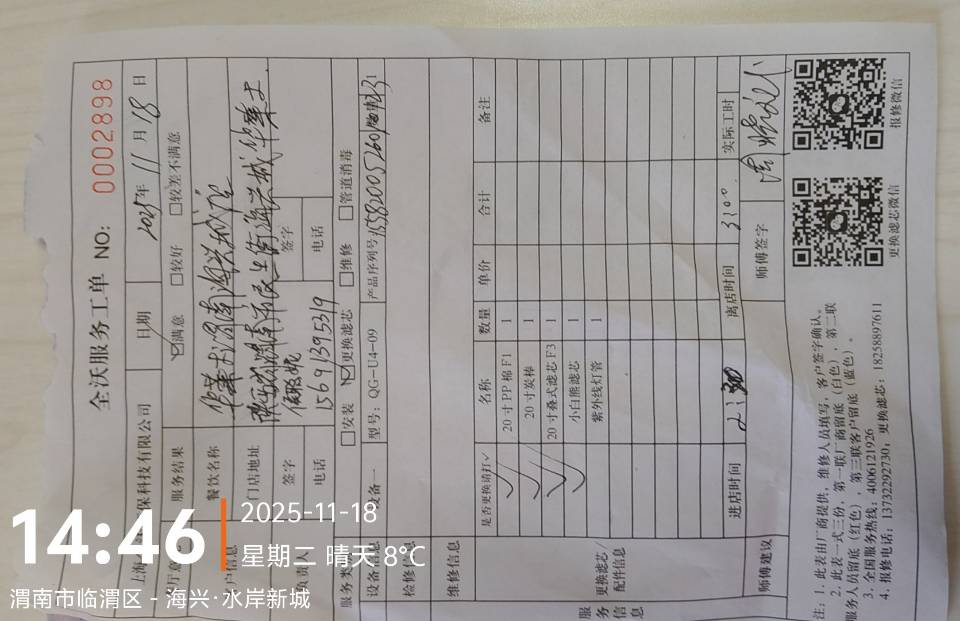 全沃服务工单 NO: 0002898
上海 保科技有限公司 日期 2025年 11月 18日
服务结果 ☑满意 □较好 □较差不满意
餐饮名称 华莱士渭南海兴城店
门店地址
签字 签字
电话 15691395319 电话
服务类 □安装 ☑更换滤芯 □维修 □管道消毒
设备信息 设备一 型号: QG-U4-09 产品序列号
检修信息
维修信息
更换滤芯/配件信息
是否更换请打✓ 名称 数量 单价 合计 备注
✓ 20寸PP棉F1 1
20寸炭棒 1
✓ 20寸叠式滤芯F3 1
✓ 小白熊滤芯 1
紫外线灯管 1
服务信息
进店时间 2:30 离店时间 3:00 实际工时
师傅建议 师傅签字
注: 1. 此表由厂商提供, 维修人员填写, 客户签字确认。
2. 此表一式三份, 第一联厂商留底(白色), 第二联
服务人员留底(红色), 第三联客户留底(蓝色)。
3. 全国服务热线: 4006121926
4. 报修电话: 13732292730; 更换滤芯: 18258897611
更换滤芯微信
报修微信
14:46
2025-11-18
星期二 晴天 8℃
渭南市临渭区 - 海兴·水岸新城